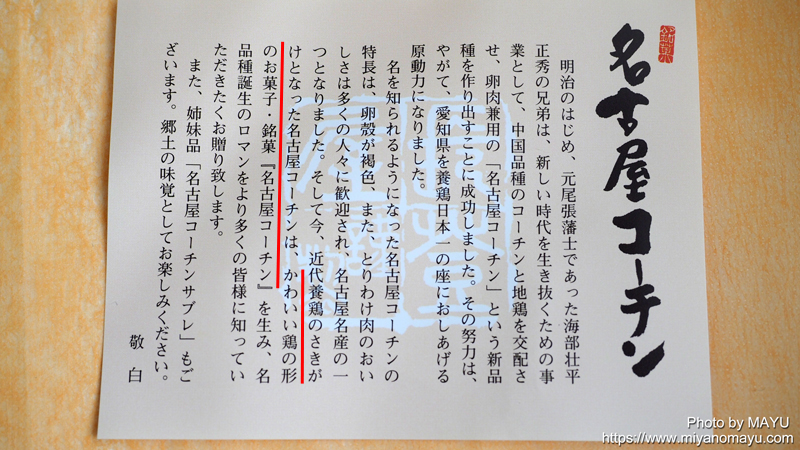 名古屋コーチン
明治のはじめ、元尾張藩士であった海部壮平
正秀の兄弟は、新しい時代を生き抜くための事
業として、中国品種のコーチンと地鶏を交配さ
せ、卵肉兼用の「名古屋コーチン」という新品
種を作り出すことに成功しました。その努力は、
やがて、愛知県を養鶏日本一の座におしあげる
原動力になりました。
名を知られるようになった名古屋コーチンの
特長は、卵殻が褐色、また、とりわけ肉のおい
しさは多くの人々に歓迎され、名古屋名産の一
つとなりました。そして今、近代養鶏のさきが
けとなった名古屋コーチンは、かわいい鶏の形
のお菓子・銘菓『名古屋コーチン』を生み、名
品種誕生のロマンをより多くの皆様に知ってい
ただきたくお贈り致します。
また、姉妹品「名古屋コーチンサブレ」もご
ざいます。郷土の味覚としてお楽しみください。
敬白
Photo by MAYU
https://www.miyanomayu.com/